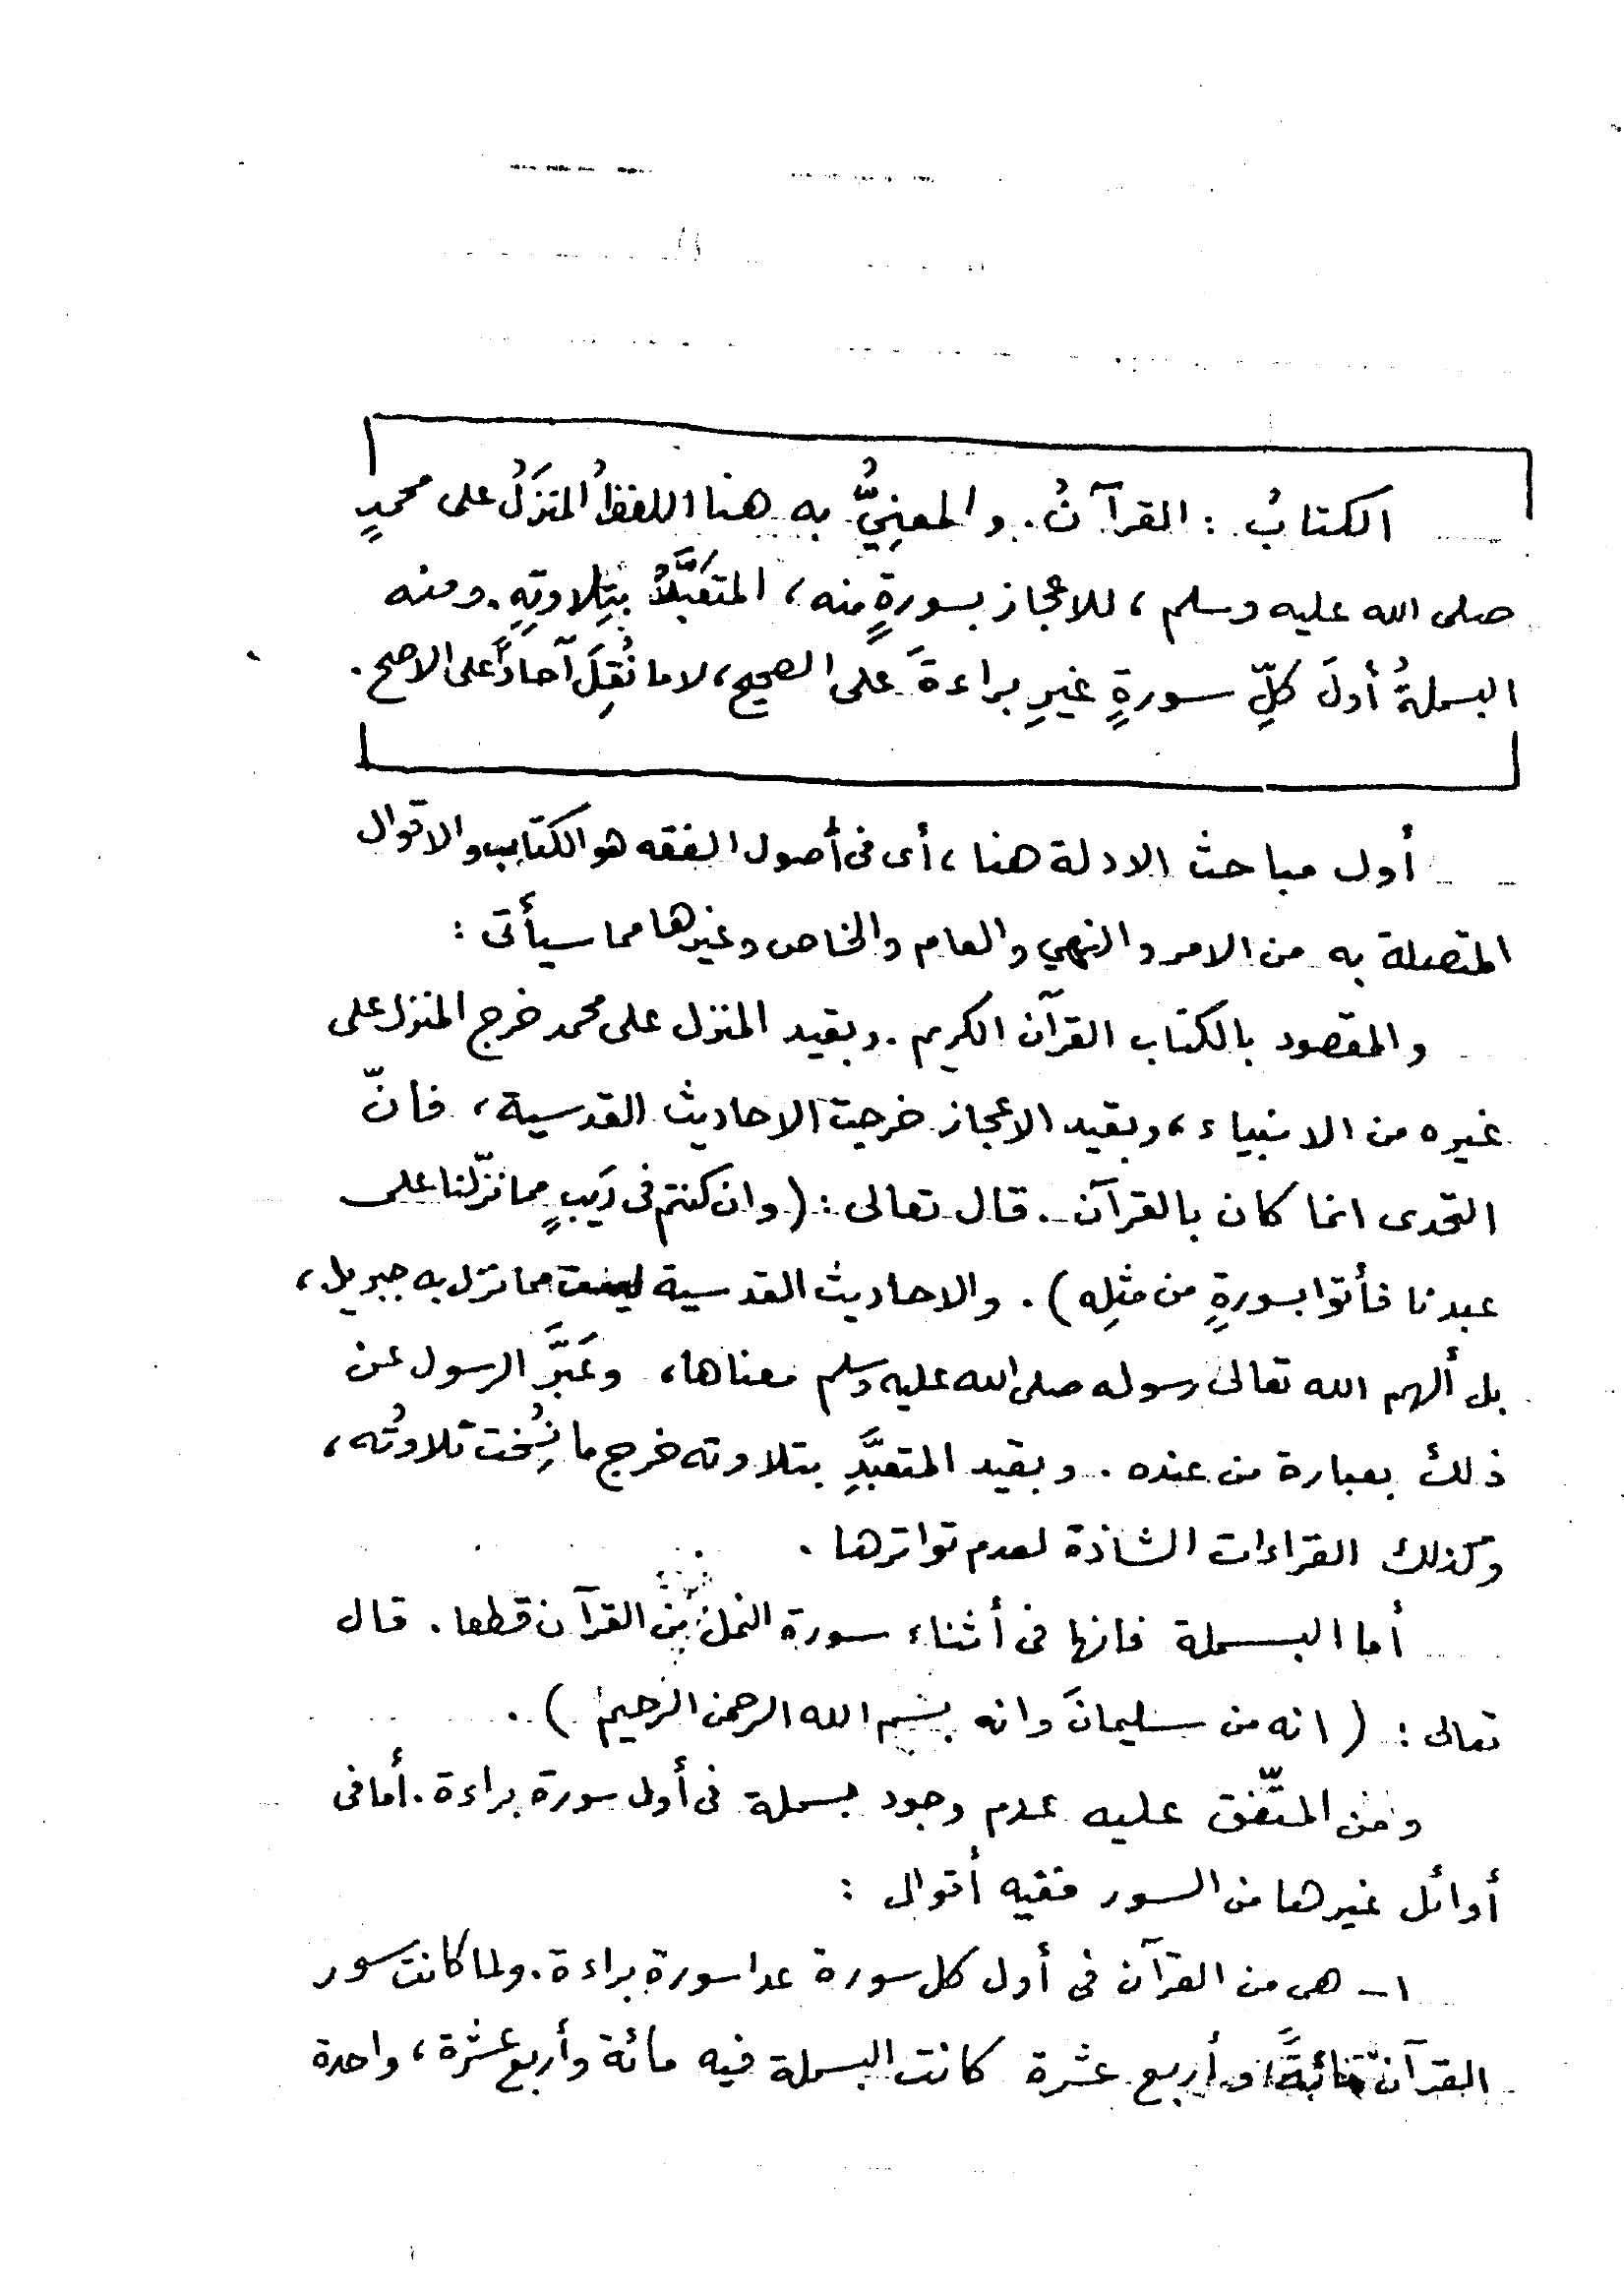 الكتابُ : القرآنُ . والمعنِيُّ به هنا اللفظُ المنزَلُ على محمدٍ
صلى الله عليه وسلم ، للاعجاز بسورةٍ منه ، المتعَبَّدُ بتِلاوتِهِ . ومنه
البسملةُ أولَ كلِّ سورةٍ غيرِ براءةَ على الصحيح ، لا ما نُقِلَ آحاداً على الاصح .
أول مباحث الادلة هنا ، أى فى أصول الفقه هو الكتاب والاقوال
المتصلة به من الامر والنهي والعام والخاص وغيرها مما سيأتى :
والمقصود بالكتاب القرآن الكريم . وبقيد المنزل على محمد خرج المنزل على
غيره من الانبياء ، وبقيد الاعجاز خرجت الاحاديث القدسية ، فانّ
التحدى انما كان بالقرآن . قال تعالى : ( وان كنتم فى رَيبٍ مما نزّلنا على
عبدنا فأتوا بسورةٍ من مثلِه ) . والاحاديث القدسية ليست مما نزل به جبريل ،
بل ألهم الله تعالى رسوله صلى الله عليه وسلم معناها ، وعَبَّرَ الرسول عن
ذلك بعبارة من عنده . وبقيد المتعبَّدِ بتلاوته خرج ما نُسِخت تلاوتُه ،
وكذلك القراءات الشاذة لعدم تواترها .
أما البسملة فانها فى أثناء سورة النمل من القرآن قطعا . قال
تعالى : ( انه من سليمانَ وانه بسم الله الرحمن الرحيم ) .
ومن المتّفق عليه عدم وجود بسملة فى أول سورة براءة . أما فى
أوائل غيرها من السور ففيه أقوال :
١ - هى من القرآن فى أول كل سورة عدا سورة براءة . ولما كانت سور
القرآن مائةً وأربع عشرة كانت البسملة فيه مائة وأربع عشرة ، واحدة